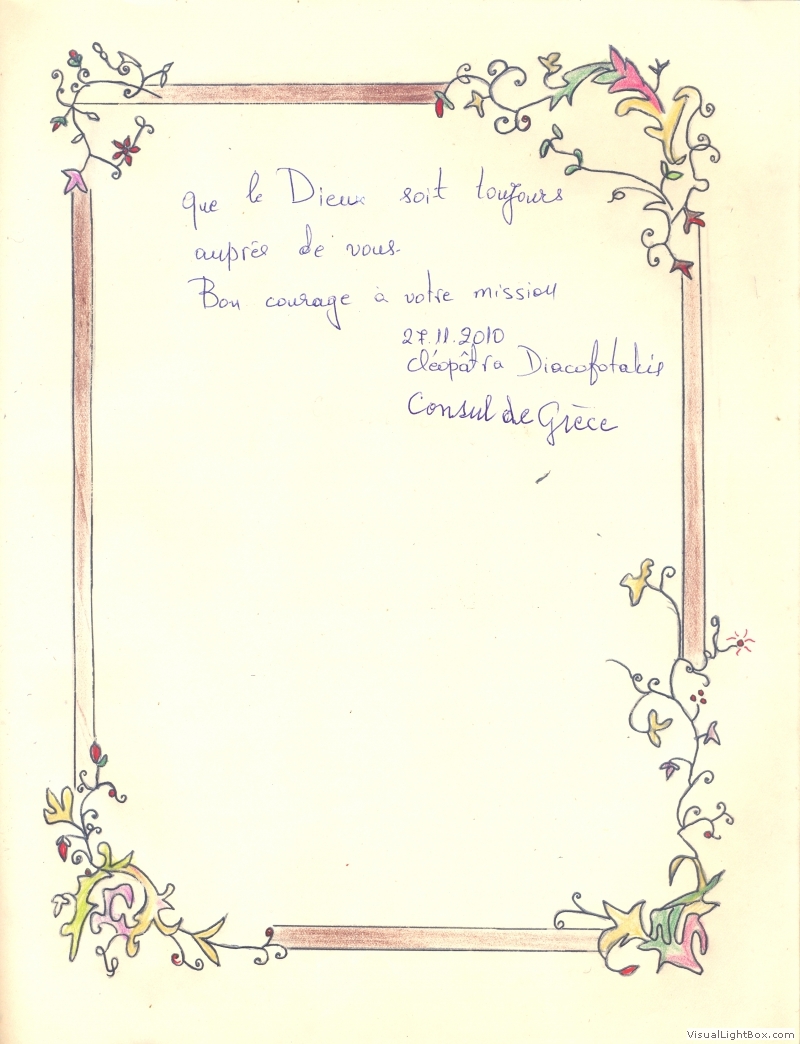 que le Dieux soit toujours
auprés de vous.
Bon courage à votre mission
27.11.2010
cléopâtra Diacofotakis
Consul de Grèce
VisualLightBox.com